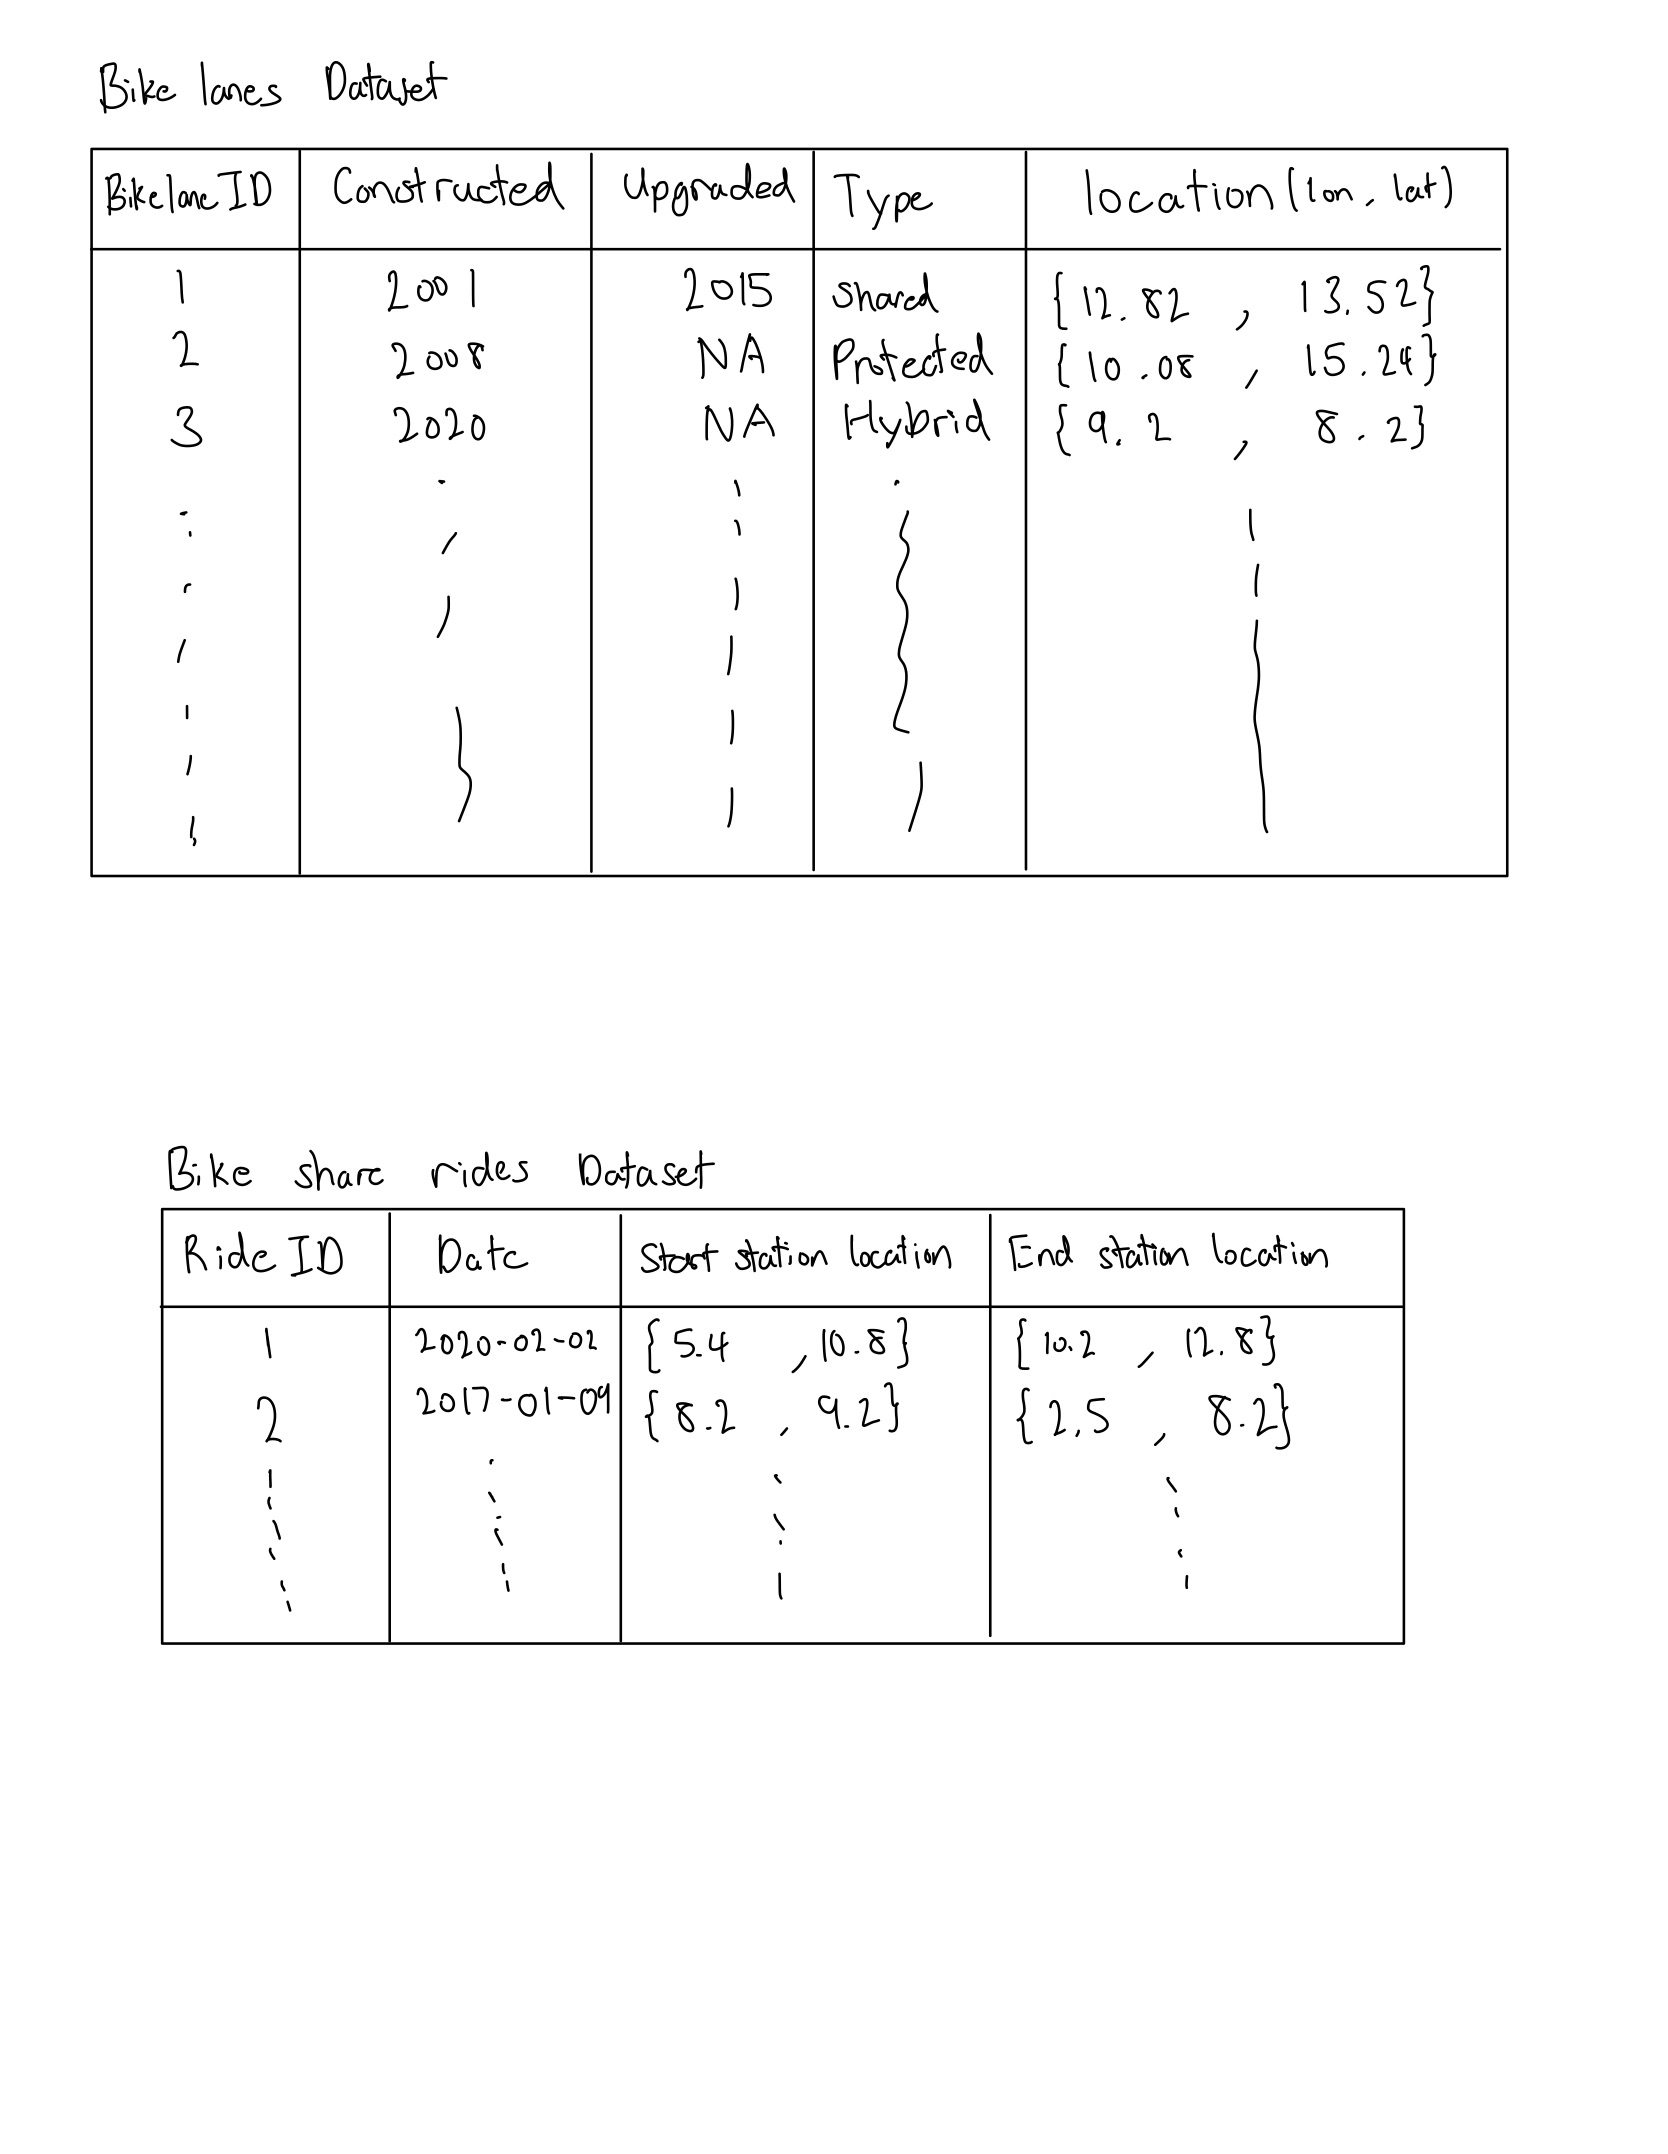 Bike lanes Dataset
Bike lane ID Constructed Upgraded Type location (lon, lat)
1 2001 2015 shared {12.82 , 13.52}
2 2008 NA Protected {10.08 , 15.24}
3 2020 NA Hybrid {9.2 , 8.2}
Bike share rides Dataset
Ride ID Date Start station location End station location
1 2020-02-02 {5.4 , 10.8} {10.2 , 12.8}
2 2017-01-09 {8.2 , 9.2} {2.5 , 8.2}